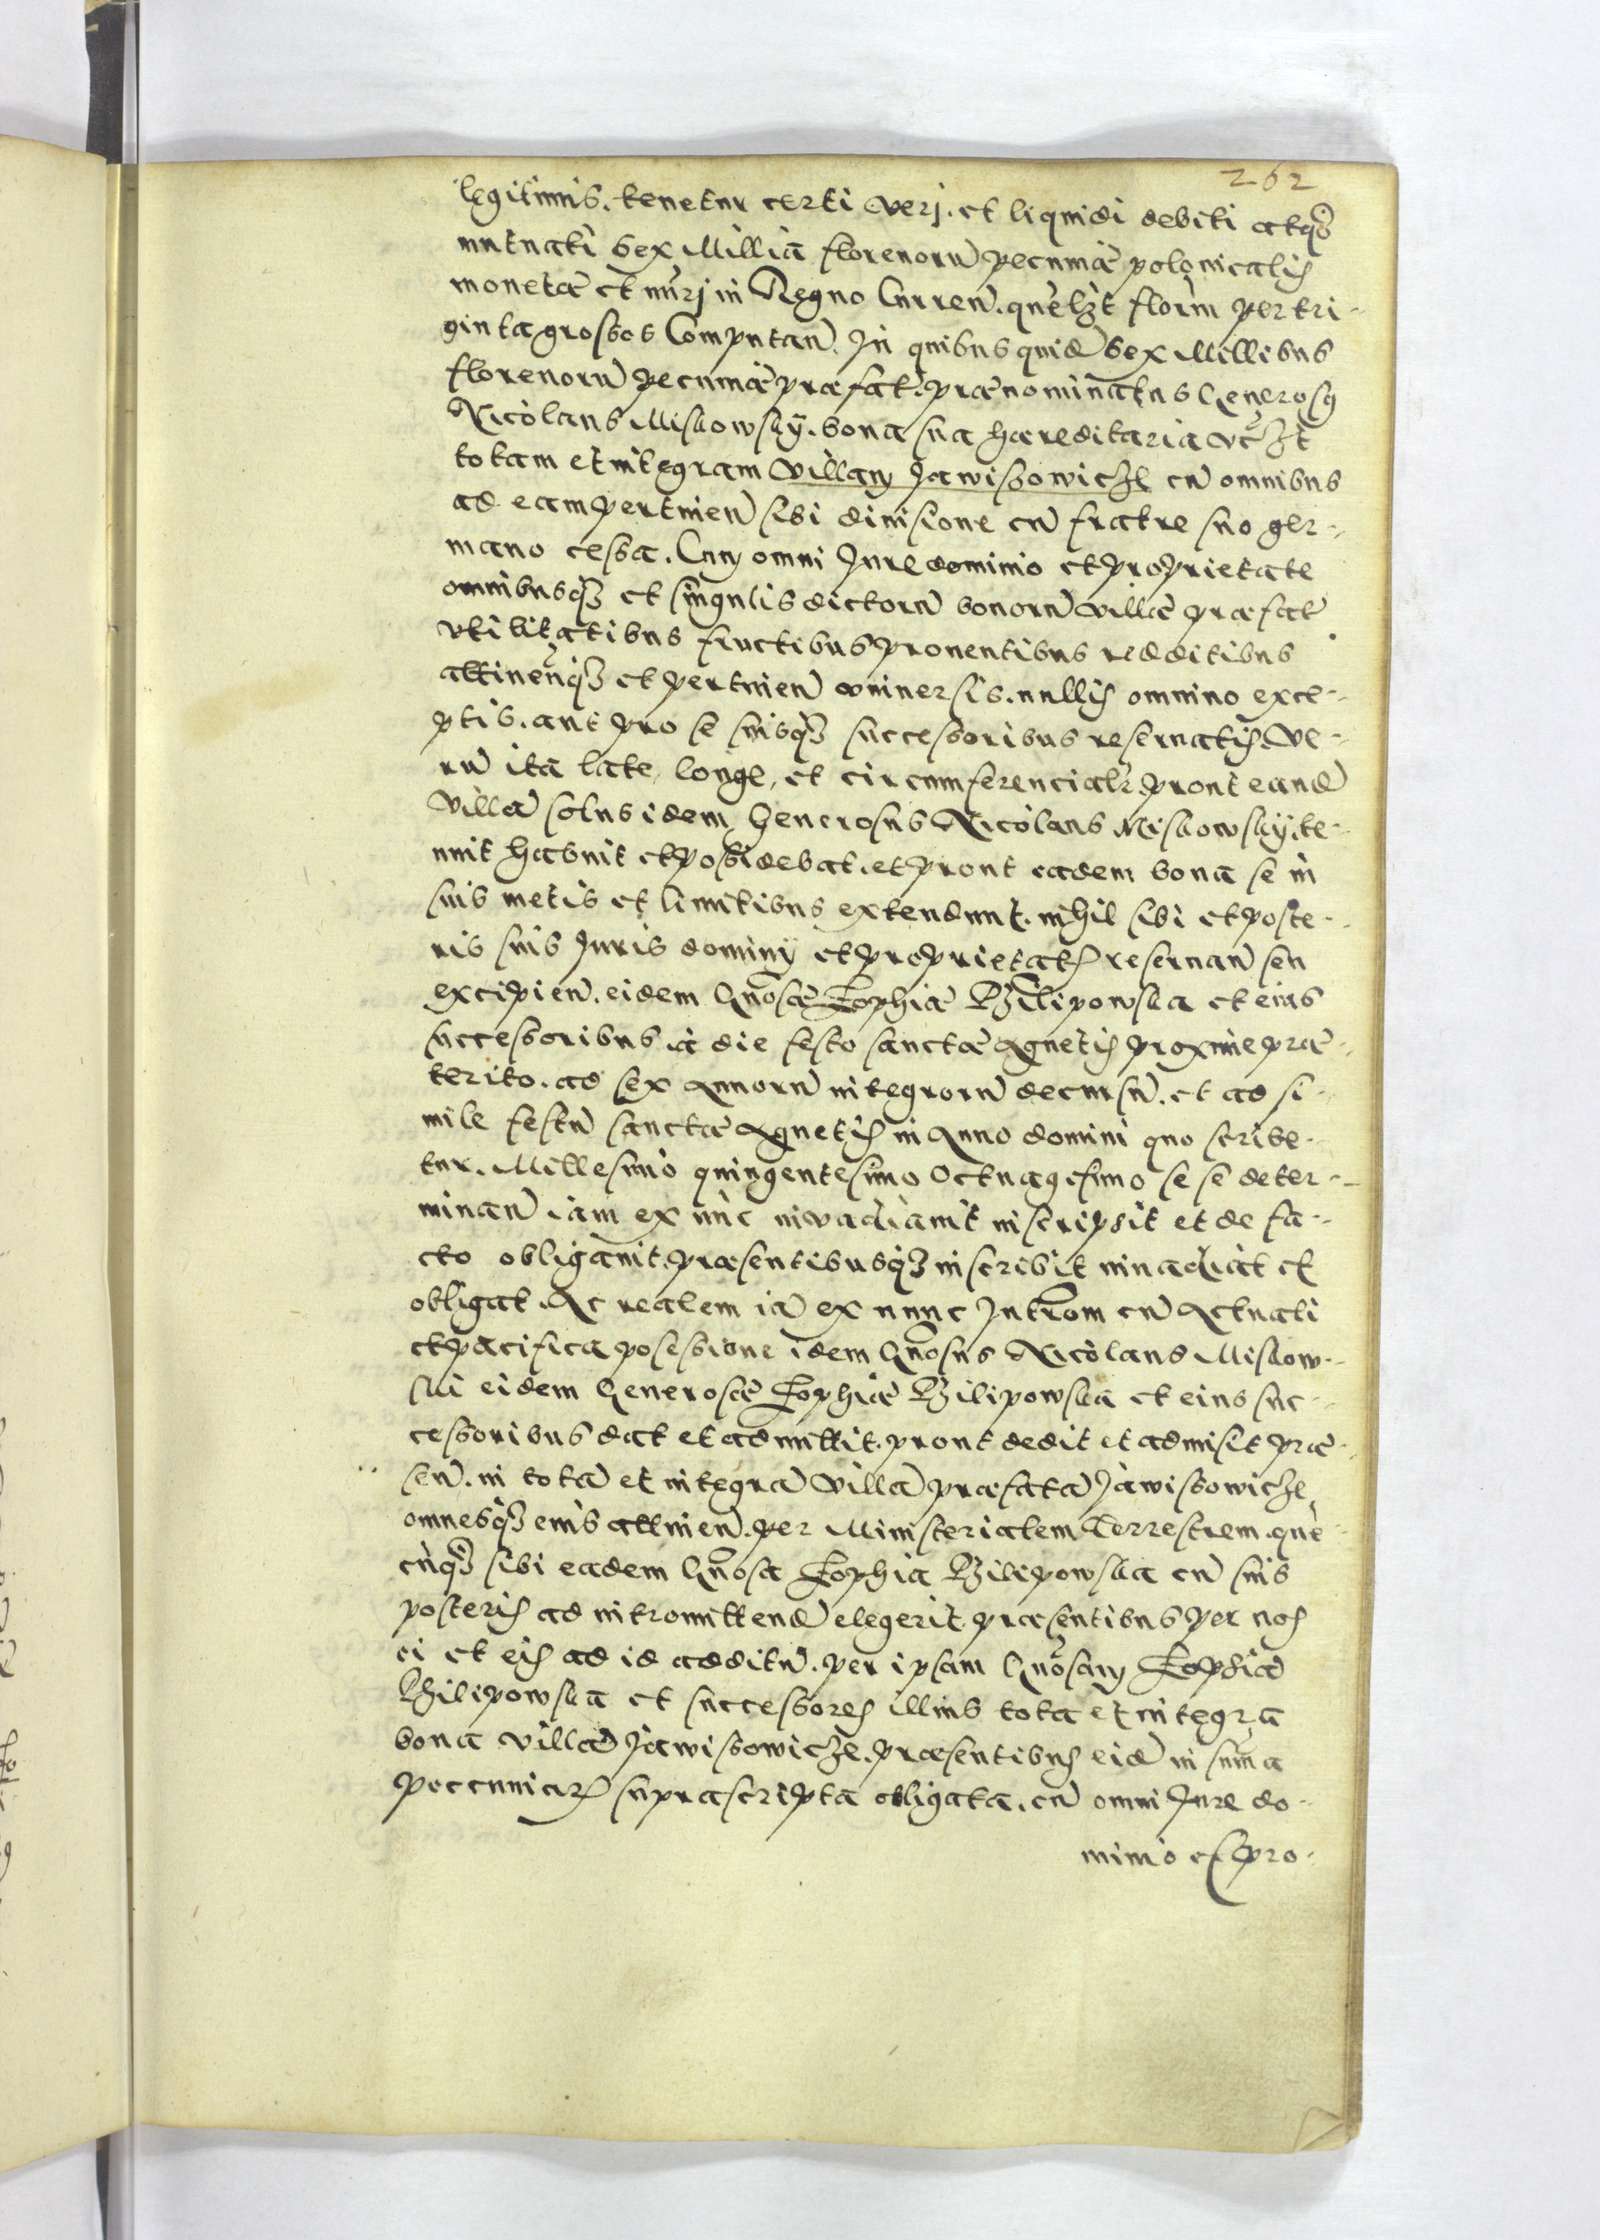 262
legitimis. tenetur certi verj. et liquidi debiti atqꝫ
mutuati Sex Milliā florenorū pecuniæ polonicalis
monetæ et nūrj in Regno Curreñ. quēlꝫt florm̄ per tri-
ginta grossos Computañ. In quibus quid̄ Sex Millibus
florenorū pecuniæ præfat̄. prænominatus Generosꝯ
Nicolaus Miskowskÿ. bona sua hæreditaria vcꝫt
totam et integram villam Jawissowicze cū omnibus
ad eam pertineñ sibi diuisione cū fratre suo ger-
mano cessa. Cum omni Jure dominio et proprietate
omnibusqꝫ et singulis dictorū bonorū villæ præfat̄
vtilitatibus fructibus prouentibus redditibus
attineñqꝫ et pertineñ vniuersis. nullis omnino exce-
ptis. aut pro se suisqꝫ successoribus reseruatis. Ve-
rū ita late, longe, et circumferencialr̄. prout eand̄
villā solus idem Generosus Nicolaus Miskowskÿ. te-
nuit habuit et possidebat. et prout eadem bona se in
suis metis et limitibus extendunt. nihil sibi et poste-
ris suis Juris dominÿ et proprietatis reseruañ seu
excipieñ. eidem Gn̄osæ Zophiæ Philipowska et eius
successoribus à die festo sanctæ Agnetis proxime præ-
terito. ad sex Annorū integrorū decursū. et ad si-
mile festū sanctæ Agnetis in Anno domini quo scribe-
tur. Millesimo quingentesimo Octuagesimo se se deter-
minañ iam ex nūc inuadiauit inscripsit et de fa-
cto obligauit. præsentibusqꝫ inscribit inuadiat et
obligat. Ac realem iā ex nunc Intrōm cū Actuali
et pacifica possessione idem Gn̄osus Nicolaus Miskow-
ski eidem Generosæ Zophiæ Philipowska et eius suc-
cessoribus dat et admittit. prout dedit et admisit præ-
señ. in totā et integrā villā præfatā Jawissowicze
omnesqꝫ eius attineñ. per Ministerialem Terrestrem. quē-
cūqꝫ sibi eadem Gn̄osa Zophia Philipowska cū suis
posteris ad intromittend̄ elegerit. præsentibus per nos
ei et eis ad id additū. per ipsam Gn̄osam Zophiā
Philipowska et successores illius tota et integra
bona villæ Jawissowicze. præsentibus eid̄ in sum̄a
pecuniarꝫ suprascripta obligata. cū omni Jure do-
minio et pro-